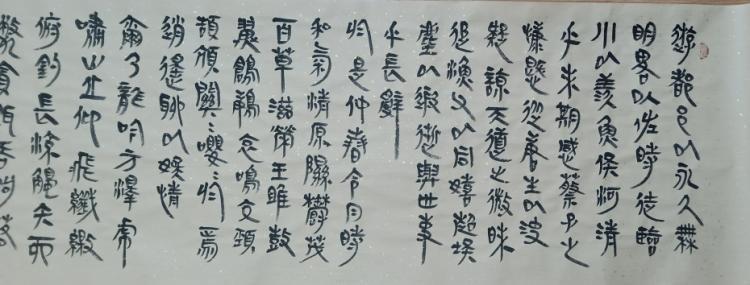 遊都邑以永久無
明略以佐時徒臨
川以羨魚俟河清
乎未期感蔡子之
慷慨從唐生以決
疑諒天道之微昧
追漁父以同嬉超埃
塵以遐逝與世事
乎長辭
於是仲春令月時
和氣清原隰鬱茂
百草滋榮王雎鼓
翼鶬鶊哀鳴交頸
頡頏關〻嚶〻於焉
逍遙聊以娛情
爾乃龍吟方澤虎
嘯山丘仰飛纖繳
俯釣長流觸矢而
斃貪餌吞鉤落